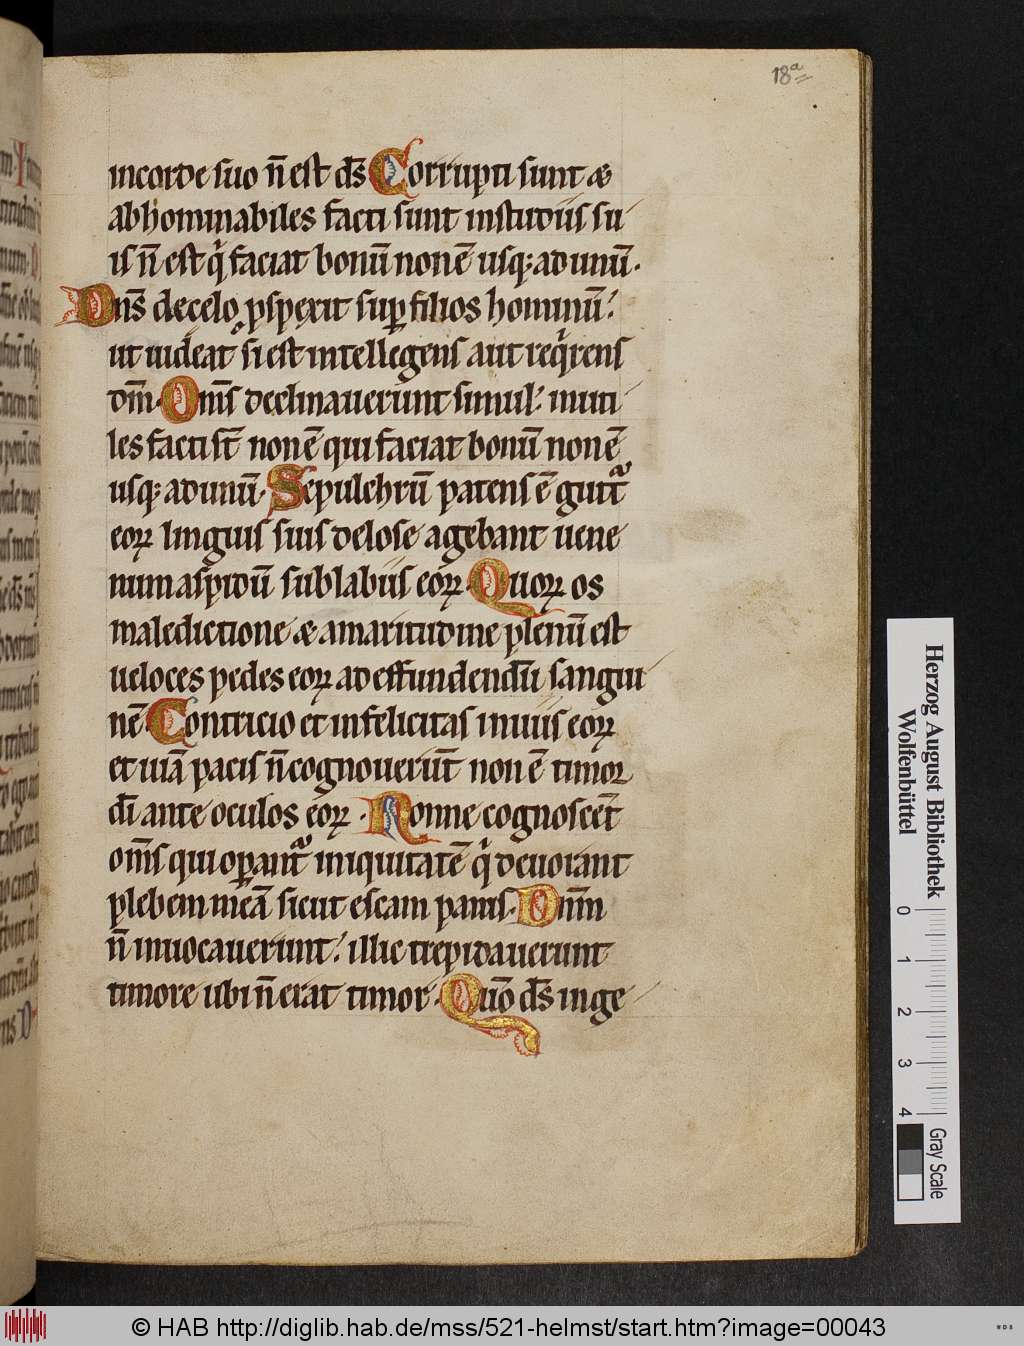 18a
incorde suo n̄ est ds̄ Corrupti sunt &
abhominabiles facti sunt instudiis su
is n̄ est q̇ faciat bonū non ē usq; ad unū.
Dns̄ decelo ꝑspexit suꝑ filios hominū:
ut uideat si est intellegens aut req̇rens
dm̄. Oms̄ declinauerunt simul: inuti
les facti st̄ non ē qui faciat bonū non ē
usq; ad unū. Sepulchrū patens ē gutt᷑
eoꝝ linguis suis dolose agebant uene
num aspidū sub labiis eoꝝ. Quoꝝ os
maledictione & amaritudine plenū est
ueloces pedes eoꝝ ad effundendū sangui
nē Contricio et infelicitas inuiis eoꝝ
et uiā pacis n̄ cognouerūt non ē timor
dī ante oculos eoꝝ. Nonne cognoscēt
oms̄ qui oꝑant᷑ iniquitatē q̇ deuorant
plebem meā sicut escam panis. Dnm̄
n̄ inuocauerunt: illic trepidauerunt
timore ubi n̄ erat timor. Qm̄ ds̄ inge
Herzog August Bibliothek
Wolfenbüttel
0 1 2 3 4
Gray Scale
© HAB http://diglib.hab.de/mss/521-helmst/start.htm?image=00043